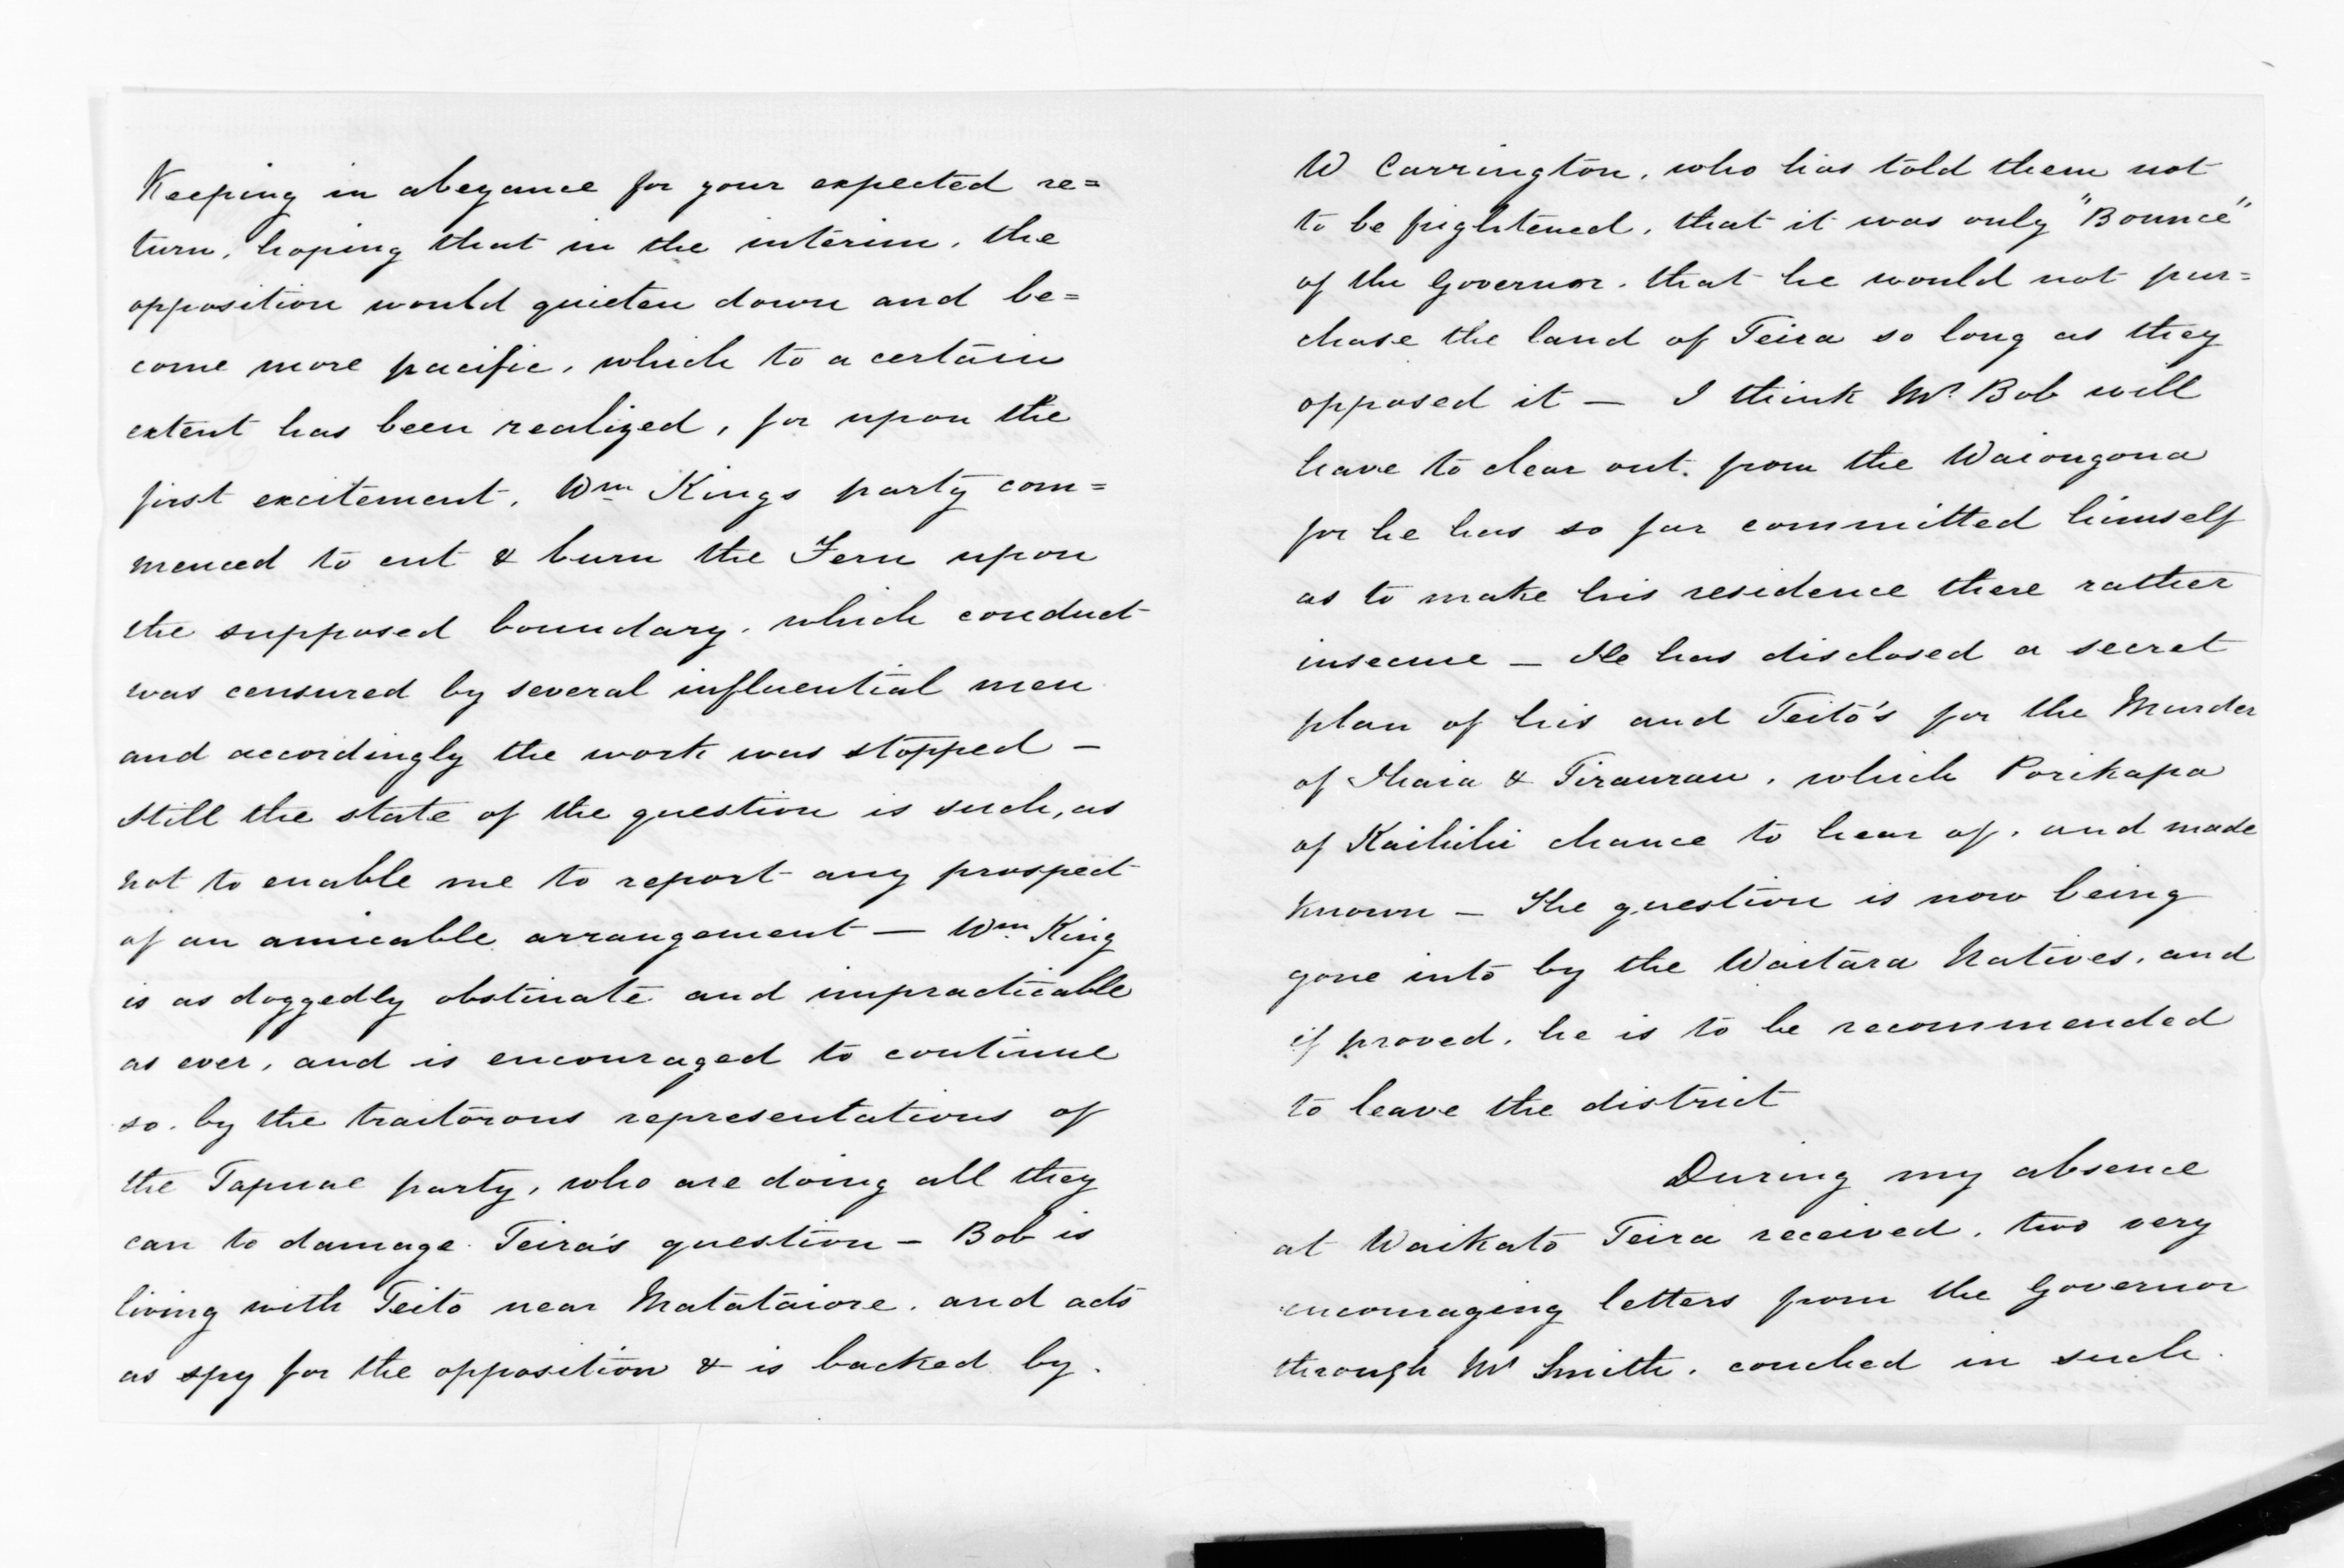 Keeping in abeyance for your expected re=
turn, hoping that in the interim, the
opposition would quieten down and be=
come more pacific, which to a certain
extent has been realized, for upon the
first excitement, Wm Kings party com=
menced to cut & burn the Fern upon
the supposed boundary, which conduct
was censured by several influential men
and accordingly the work was stopped —
Still the state of the question is such, as
not to enable me to report any prospect
of an amicable arrangement — Wm King
is as doggedly obstinate and impracticable
as ever, and is encouraged to continue
so. by the traitorous representations of
the Tapuae party, who are doing all they
can to damage Teira's question — Bob is
living with Teito near Matataiore. and acts
as spy for the opposition & is backed by.
W Carrington, who has told them not
to be frightened, that it was only "Bounce"
of the Governor. that he would not pur=
chase the land of Teira so long as they
opposed it — I think Mr Bob will
have to clear out. from the Waiongona
for he has so far committed himself
as to make his residence there rather
insecure — He has disclosed a secret
plan of his and Teito's for the Murder
of Ihaia & Tiraurau, which Porikapa
of Kaihihi chance to hear of, and made
known — The question is now being
gone into by the Waitara Natives, and
if proved, he is to be recommended
to leave the district
During my absence
at Waikato Teira received, two very
encouraging letters from the Governor
through Mr Smith, couched in such